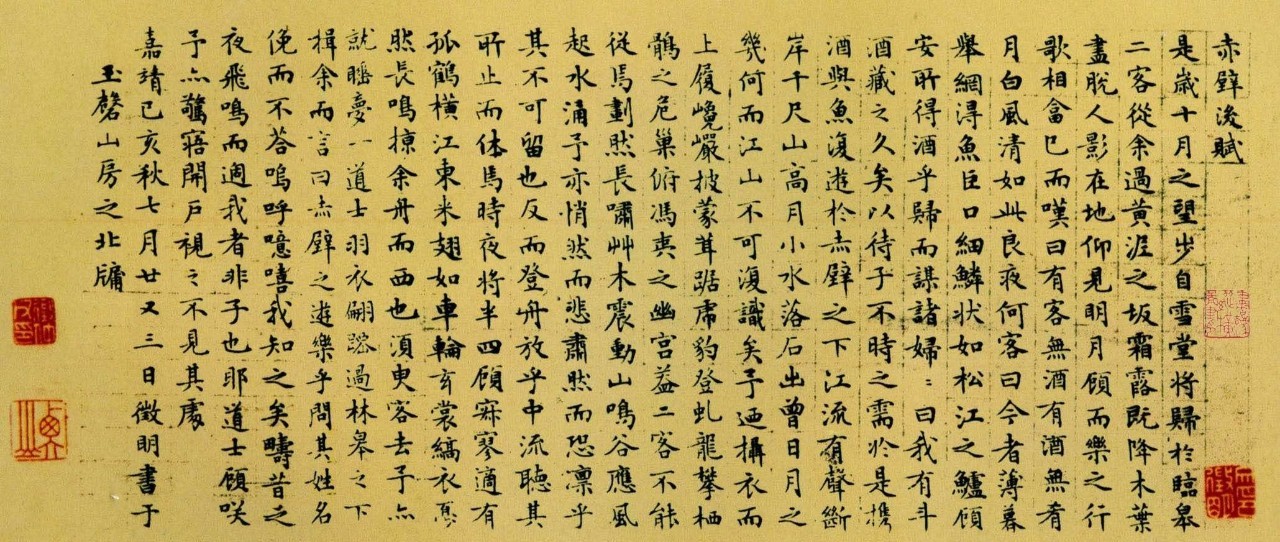 赤壁後賦
是歲十月之望步自雪堂將歸於臨皋
二客從余過黃泥之坂霜露既降木葉
盡脫人影在地仰見明月顧而樂之行
歌相答已而嘆曰有客無酒有酒無肴
月白風清如此良夜何客曰今者薄暮
舉網得魚巨口細鱗狀如松江之鱸顧
安所得酒乎歸而謀諸婦〻曰我有斗
酒藏之久矣以待子不時之需於是攜
酒與魚復遊於赤壁之下江流有聲斷
岸千尺山高月小水落石出曾日月之
幾何而江山不可復識矣予迺攝衣而
上履巉巖披蒙茸踞虎豹登虬龍攀栖
鶻之危巢俯馮夷之幽宮蓋二客不能
從焉劃然長嘯艸木震動山鳴谷應風
起水涌予亦悄然而悲肅然而恐凜乎
其不可留也反而登舟放乎中流聽其
所止而休焉時夜將半四顧寂寥適有
孤鶴橫江東來翅如車輪玄裳縞衣戛
然長鳴掠余舟而西也須臾客去予亦
就睡夢一道士羽衣翩躚過林皋之下
揖余而言曰赤壁之遊樂乎問其姓名
俛而不答嗚呼噫嘻我知之矣疇昔之
夜飛鳴而過我者非子也耶道士顧咲
予亦驚寤開戶視之不見其處
嘉靖己亥秋七月廿又三日徵明書于
玉磬山房之北牖